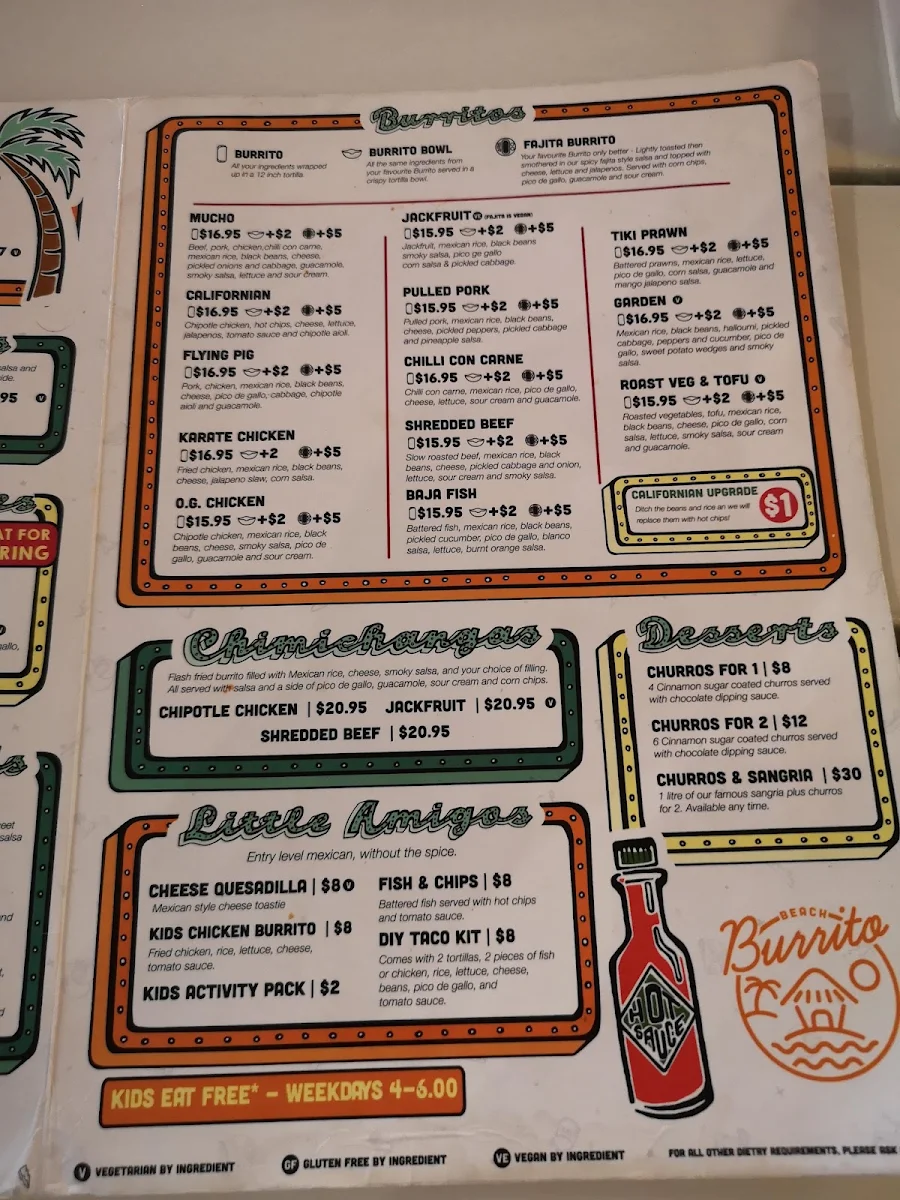 Burritos
BURRITO
All your ingredients wrapped
up in a 12 inch tortilla
BURRITO BOWL
All the same ingredients from
your favourite Burrito served in a
crispy tortilla bowl.
FAJITA BURRITO
Your favourite Burrito only better - Lightly toasted then
smothered in our spicy fajita style salsa and topped with
cheese, lettuce and jalapenos. Served with corn chips,
pico de gallo, guacamole and sour cream.
MUCHO
$16.95 +$2 +$5
Beef, pork, chicken,chilli con carne,
mexican rice, black beans, cheese,
pickled onions and cabbage, guacamole,
smoky salsa, lettuce and sour cream.
CALIFORNIAN
$16.95 +$2 +$5
Chipotle chicken, hot chips, cheese, lettuce,
jalapenos, tomato sauce and chipotle aioli.
FLYING PIG
$16.95 +$2 +$5
Pork, chicken, mexican rice, black beans,
cheese, pico de gallo, cabbage, chipotle
aioli and guacamole.
KARATE CHICKEN
$16.95 +2 +$5
Fried chicken, mexican rice, black beans,
cheese, jalapeno slaw, corn salsa.
O.G. CHICKEN
$15.95 +$2 +$5
Chipotle chicken, mexican rice, black
beans, cheese, smoky salsa, pico de
gallo, guacamole and sour cream.
JACKFRUIT VE (FAJITA IS VEGAN)
$15.95 +$2 +$5
Jackfruit, mexican rice, black beans
smoky salsa, pico ge gallo
corn salsa & pickled cabbage.
PULLED PORK
$15.95 +$2 +$5
Pulled pork, mexican rice, black beans,
cheese, pickled peppers, pickled cabbage
and pineapple salsa.
CHILLI CON CARNE
$16.95 +$2 +$5
Chilli con carne, mexican rice, pico de gallo,
cheese, lettuce, sour cream and guacamole.
SHREDDED BEEF
$15.95 +$2 +$5
Slow roasted beef, mexican rice, black
beans, cheese, pickled cabbage and onion,
lettuce, sour cream and smoky salsa.
BAJA FISH
$15.95 +$2 +$5
Battered fish, mexican rice, black beans,
pickled cucumber, pico de gallo, blanco
salsa, lettuce, burnt orange salsa.
TIKI PRAWN
$16.95 +$2 +$5
Battered prawns, mexican rice, lettuce,
pico de gallo, corn salsa, guacamole and
mango jalapeno salsa.
GARDEN V
$16.95 +$2 +$5
Mexican rice, black beans, halloumi, pickled
cabbage, peppers and cucumber, pico de
gallo, sweet potato wedges and smoky
salsa.
ROAST VEG & TOFU V
$15.95 +$2 +$5
Roasted vegetables, tofu, mexican rice,
black beans, cheese, pico de gallo, corn
salsa, lettuce, smoky salsa, sour cream
and guacamole.
CALIFORNIAN UPGRADE
Ditch the beans and rice an we will
replace them with hot chips!
$1
Chimichangas
Flash fried burrito filled with Mexican rice, cheese, smoky salsa, and your choice of filling.
All served with salsa and a side of pico de gallo, guacamole, sour cream and corn chips.
CHIPOTLE CHICKEN | $20.95 JACKFRUIT | $20.95 V
SHREDDED BEEF | $20.95
Desserts
CHURROS FOR 1 | $8
4 Cinnamon sugar coated churros served
with chocolate dipping sauce.
CHURROS FOR 2 | $12
6 Cinnamon sugar coated churros served
with chocolate dipping sauce.
CHURROS & SANGRIA | $30
1 litre of our famous sangria plus churros
for 2. Available any time.
Little Amigos
Entry level mexican, without the spice.
CHEESE QUESADILLA | $8 V
Mexican style cheese toastie
KIDS CHICKEN BURRITO | $8
Fried chicken, rice, lettuce, cheese,
tomato sauce.
KIDS ACTIVITY PACK | $2
FISH & CHIPS | $8
Battered fish served with hot chips
and tomato sauce.
DIY TACO KIT | $8
Comes with 2 tortillas, 2 pieces of fish
or chicken, rice, lettuce, cheese,
beans, pico de gallo, and
tomato sauce.
KIDS EAT FREE* - WEEKDAYS 4-6.00
HOT
SAUCE
BEACH
Burrito
V VEGETARIAN BY INGREDIENT
GF GLUTEN FREE BY INGREDIENT
VE VEGAN BY INGREDIENT
FOR ALL OTHER DIETRY REQUIREMENTS, PLEASE ASK
salsa and
95 V
AT FOR
RING
salsa